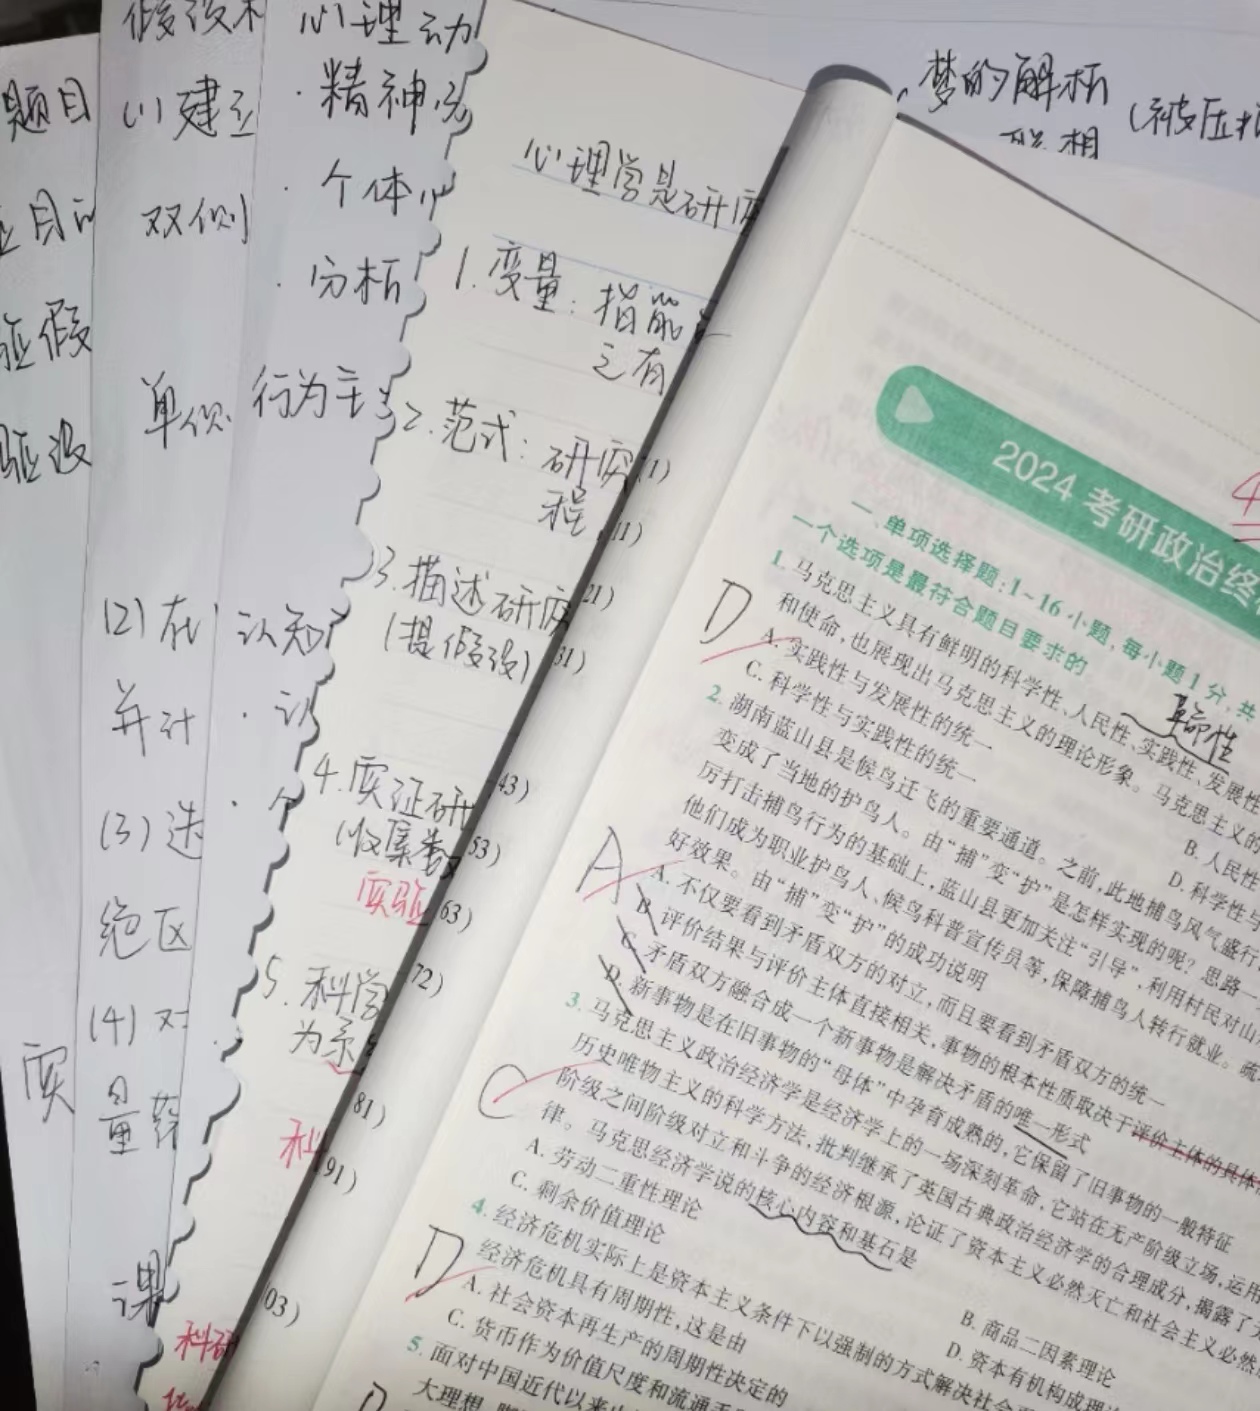 题目
假设
(1) 建立
双侧
单侧
(2) 在
并计
(3) 选
绝区
(4) 对
量
实
课
心理动
·精神分
·个体
·分析
行为主
认知
·认
·个
心理学是研究
1. 变量: 指能
之有
2. 范式: 研究
程
3. 描述研究
(提假设)
4. 实证研
(收集数
实验
5. 科学
为系
科
科研
梦的解析
联相
(被压抑
(1)
11)
21)
31)
43)
53)
63)
72)
81)
91)
03)
2024 考研政治终
一、单项选择题:1~16小题,每小题1分,共
一个选项是最符合题目要求的
1. 马克思主义具有鲜明的科学性、人民性、实践性、发展性
革命性
和使命,也展现出马克思主义的理论形象。马克思主义的
D
A. 实践性与发展性的统一
B. 人民性
C. 科学性与实践性的统一
D. 科学性与
2. 湖南蓝山县是候鸟迁飞的重要通道。之前,此地捕鸟风气盛行
变成了当地的护鸟人。由“捕”变“护”是怎样实现的呢?思路一
厉打击捕鸟行为的基础上,蓝山县更加关注“引导”,利用村民对山
他们成为职业护鸟人、候鸟科普宣传员等,保障捕鸟人转行就业。疏
好效果。由“捕”变“护”的成功说明
A
A. 不仅要看到矛盾双方的对立,而且要看到矛盾双方的统一
B. 评价结果与评价主体直接相关,事物的根本性质取决于评价主体的具体
C. 矛盾双方融合成一个新事物是解决矛盾的唯一形式
D. 新事物是在旧事物的“母体”中孕育成熟的,它保留了旧事物的一般特征
3. 马克思主义政治经济学是经济学上的一场深刻革命,它站在无产阶级立场,运用
历史唯物主义的科学方法,批判继承了英国古典政治经济学的合理成分,揭露了
阶级之间阶级对立和斗争的经济根源,论证了资本主义必然灭亡和社会主义必然
律。马克思经济学说的核心内容和基石是
C
A. 劳动二重性理论
B. 商品二因素理论
C. 剩余价值理论
D. 资本有机构成理论
4. 经济危机实际上是资本主义条件下以强制的方式解决社会
经济危机具有周期性,这是由
D
A. 社会资本再生产的周期性决定的
C. 货币作为价值尺度和流通手
5. 面对中国近代以来
大理想